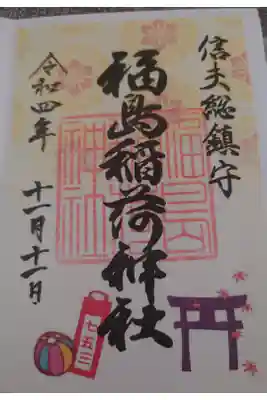 信夫総鎮守
福島稲荷神社
令和四年
十一月十一日
七五三
福島稲荷神社